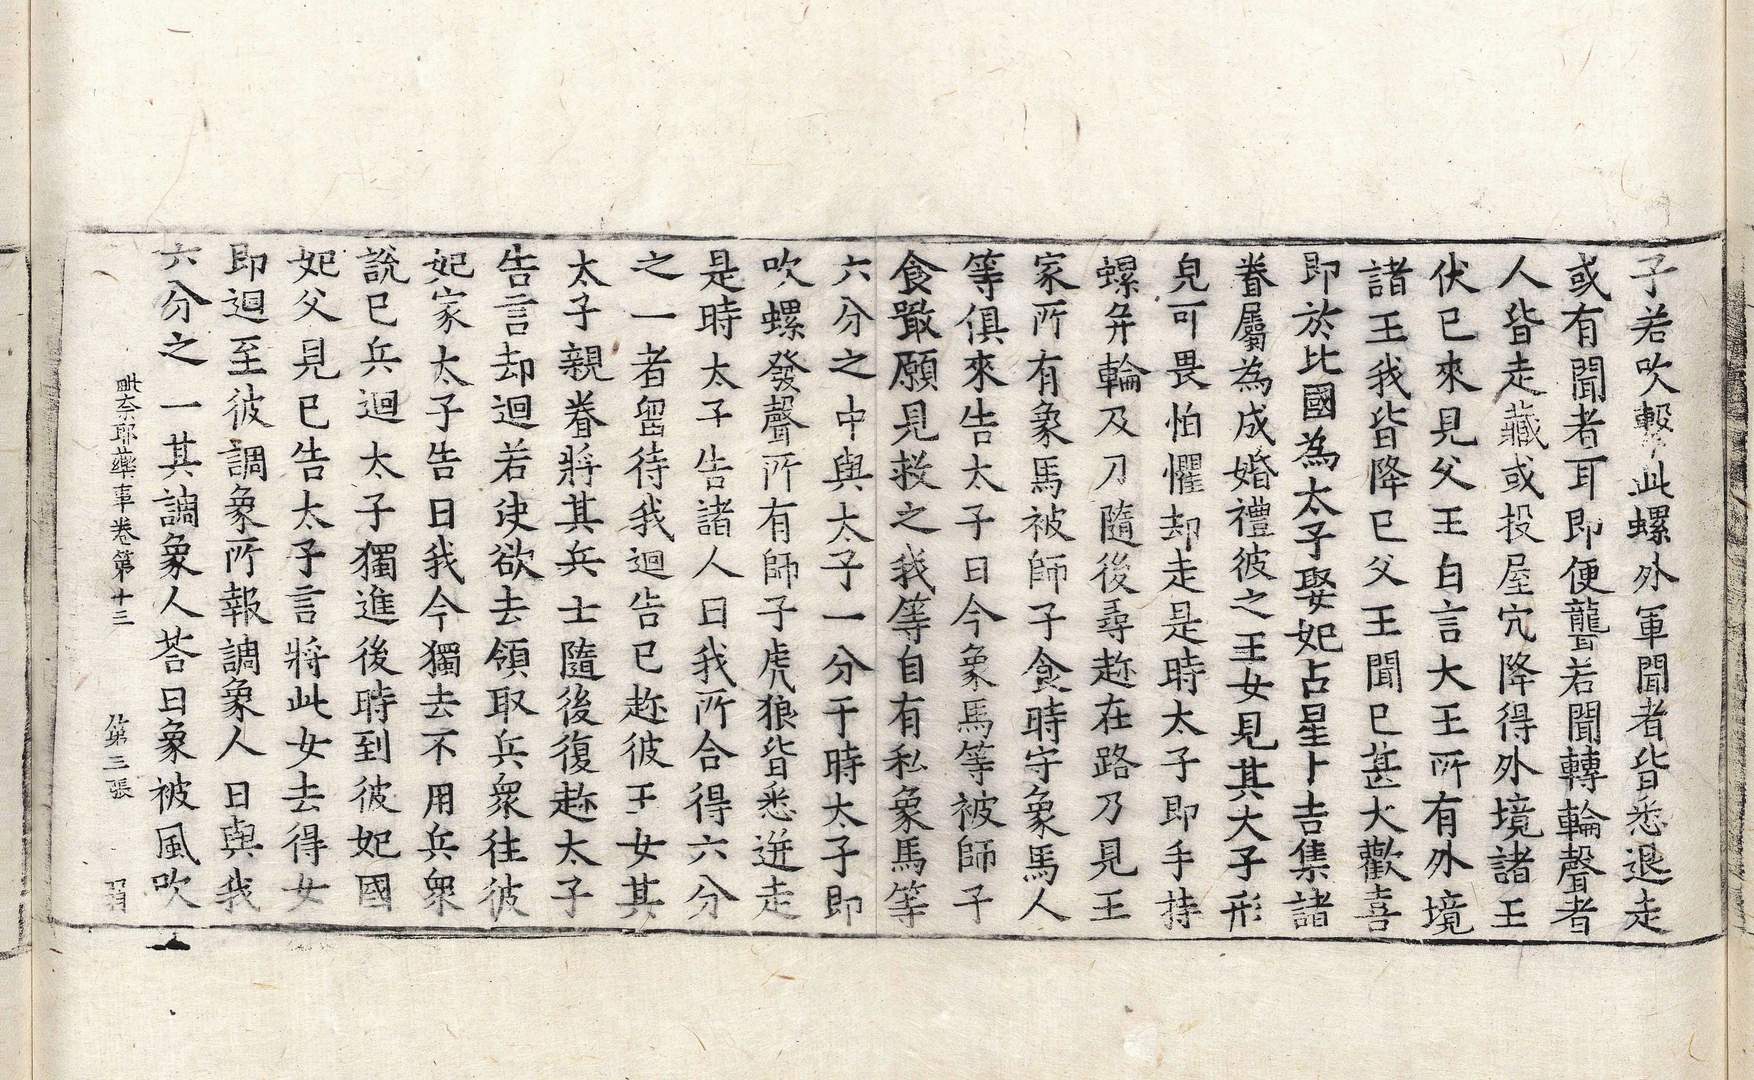 子若吹擊此螺外軍聞者皆悉退走
或有聞者耳即便聾若聞轉輪聲者
人皆走藏或投屋宂降得外境諸王
伏已來見父王白言大王所有外境
諸王我皆降已父王聞已甚大歡喜
即於比國為太子娶妃占星卜吉集諸
眷屬為成婚禮彼之王女見其大子形
皃可畏怕懼却走是時太子即手持
螺弁輪及刀隨後尋趂在路乃見王
家所有象馬被師子食時守象馬人
等俱來告太子曰今象馬等被師子
食噉願見救之我等自有私象馬等
六分之中與太子一分于時太子即
吹螺發聲所有師子虎狼皆悉迸走
是時太子告諸人曰我所合得六分
之一者留待我迴告已趂彼王女其
太子親眷將其兵士隨後復趂太子
告言却迴若使欲去領取兵衆往彼
妃家太子告曰我今獨去不用兵衆
說已兵迴太子獨進後時到彼妃國
妃父見已告太子言將此女去得女
即迴至彼調象所報調象人曰與我
六分之一其調象人荅曰象被風吹
毗奈耶藥事卷第十三 第三張 羽